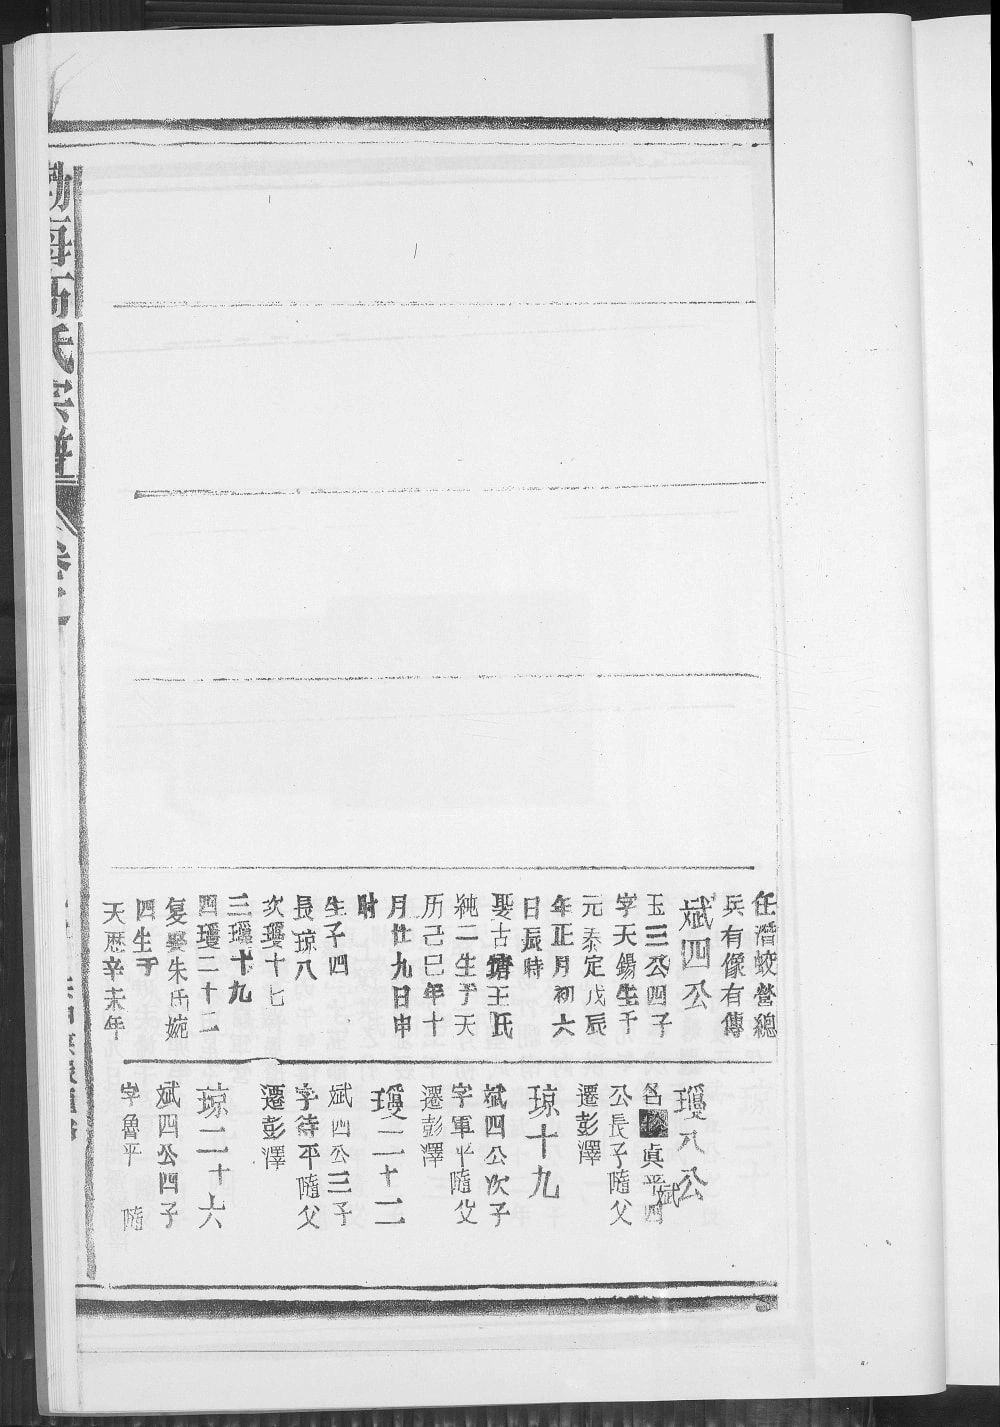 任潛蛟營總
兵有像有傳
斌四公
玉三公四子
字天錫生于
元泰定戊辰
年正月初六
日辰時
娶古塘王氏
純二生于天
历己巳年十
月廿九日申
时
生子四
長琼八
次瓊十七
三瓊十九
四瓊二十二
复娶朱氏婉
四生于
天歷辛未年
瓊八公
名 貞平斌四
公長子隨父
遷彭澤
琼十九
斌四公次子
字軍平隨父
遷彭澤
瓊二十二
斌四公三子
字待平隨父
遷彭澤
琼二十六
斌四公四子
字魯平 隨
勃海高氏宗譜